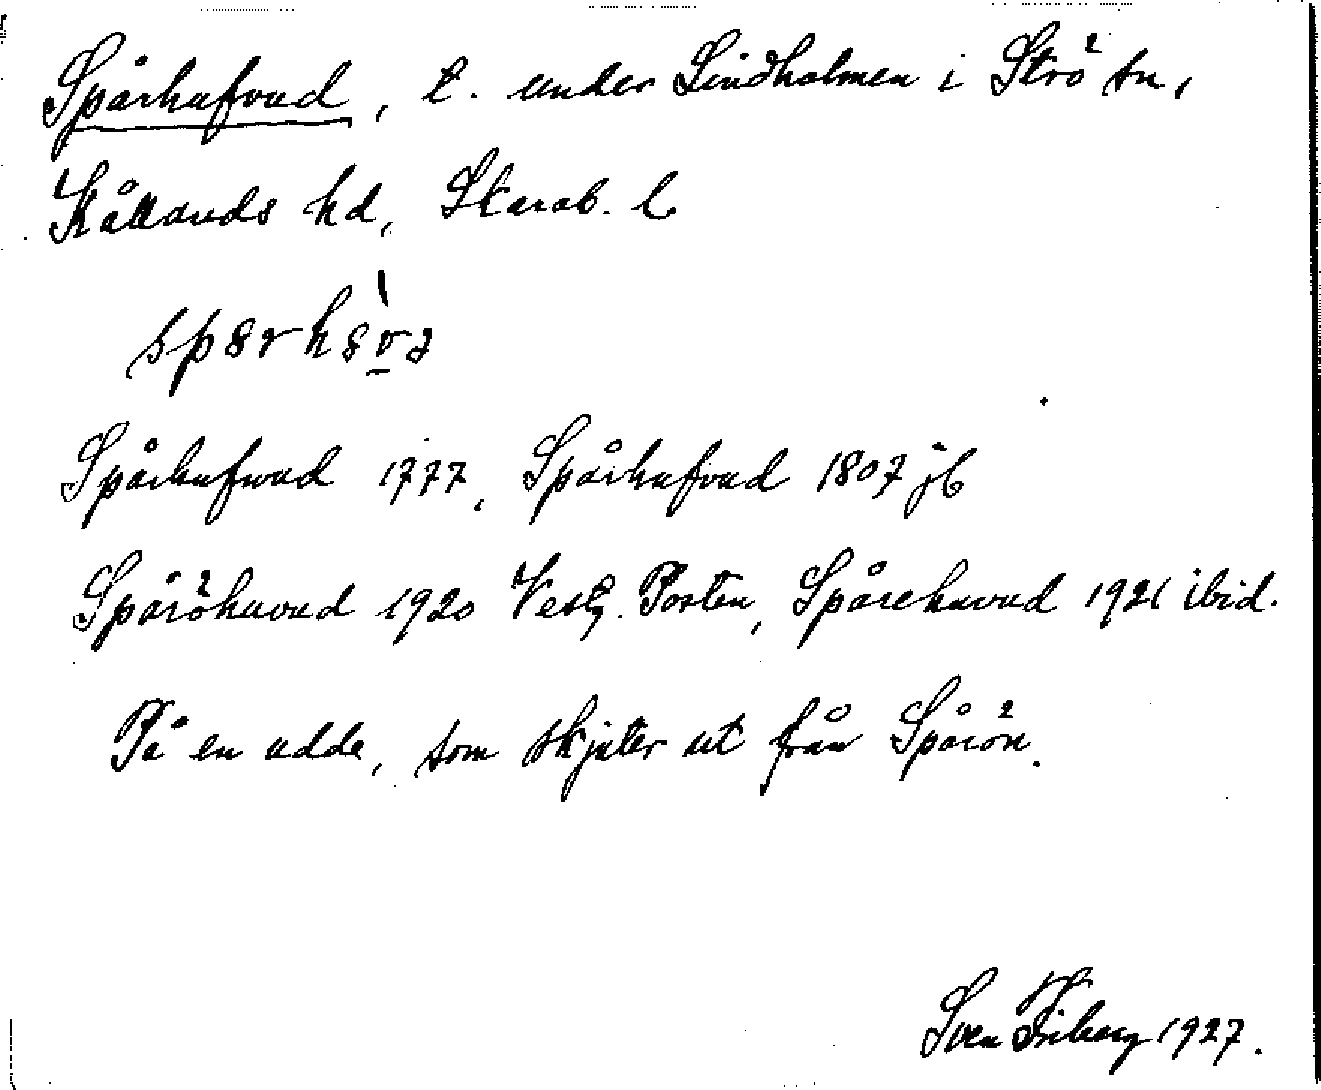 Spårhufvud, t. under Lindholmen i Strö sn,
Kållands hd, Skarab. l.
Spårhufwud 1777, Spårhufvud 1807 jb
Spåröhuvud 1920 Vestg. Posten, Spårehuvud 1921 ibid.
På en udde, som skjuter ut från Spårön.
Sven Friberg 1927.